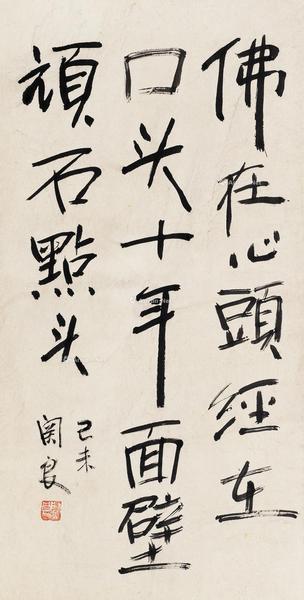 佛在心頭經在
口头十年面壁
頑石點头
己未
関良